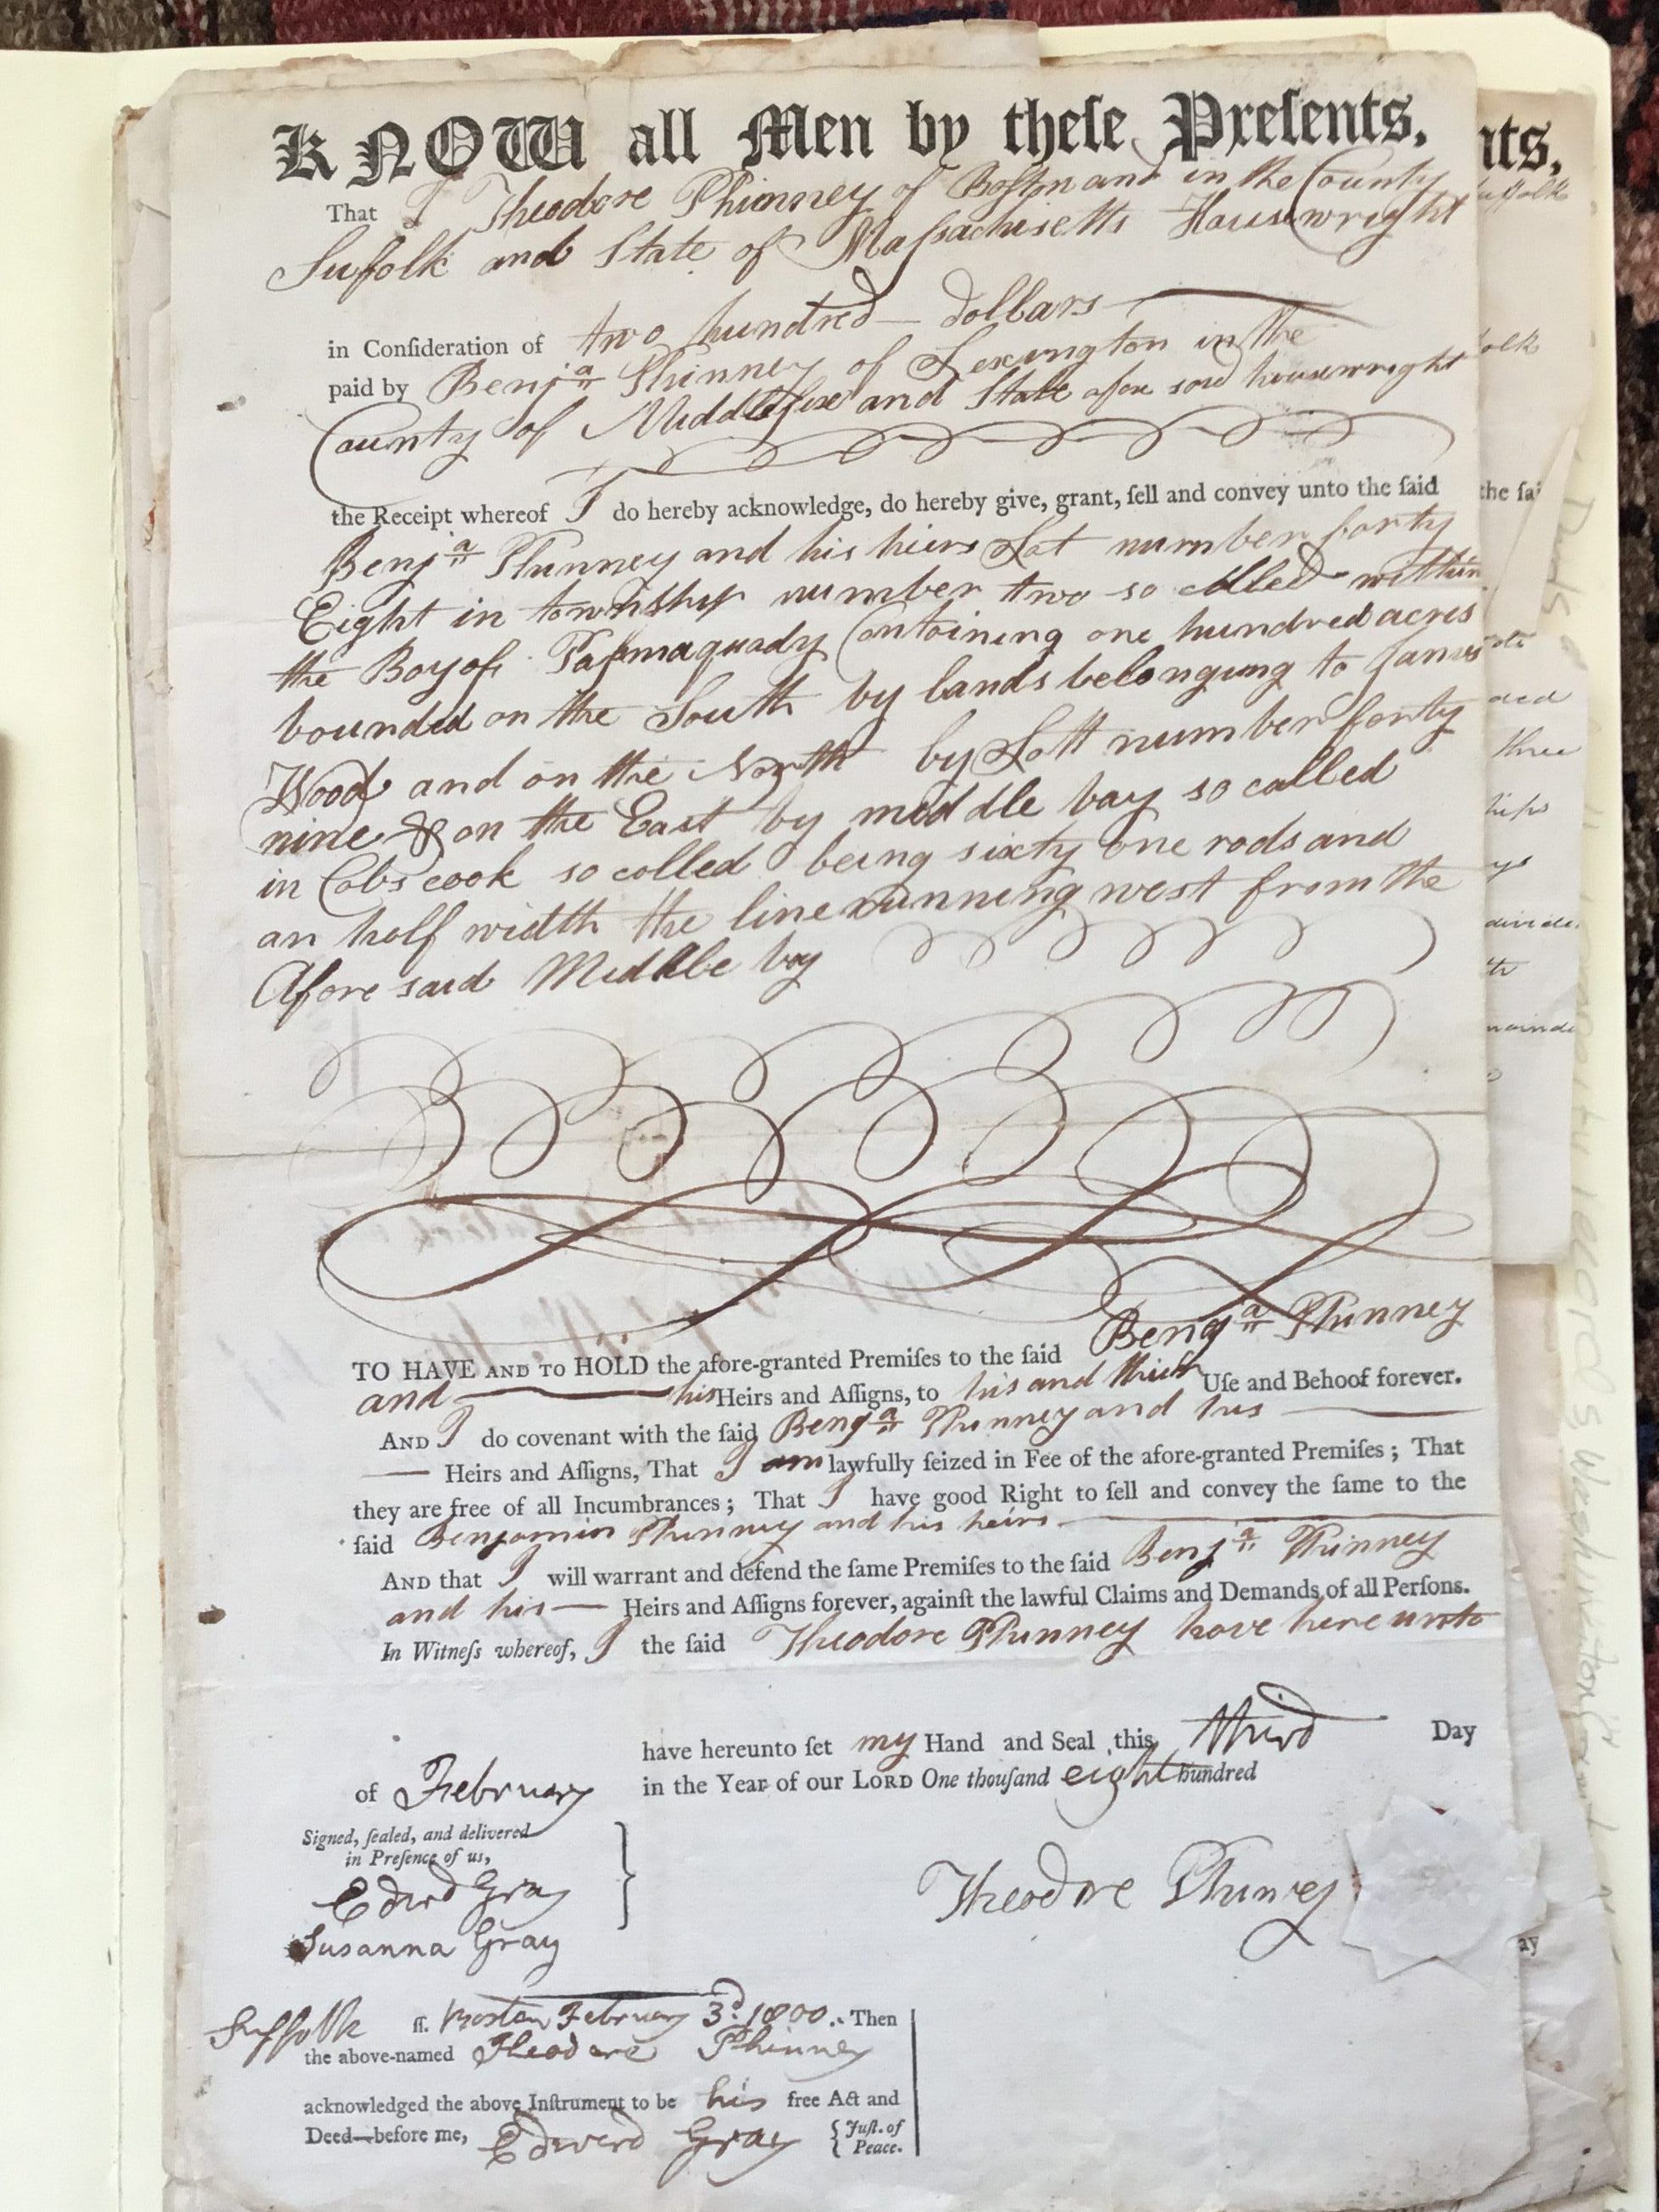 KNOW all Men by theſe Preſents,
That I Theodore Phinney of Boſton and in the County
Suffolk and State of Maſsachisetts Housewright
in Conſideration of two hundred dollars
paid by Benjª Phinney of Lexington in the
County of Middleſex and State afore said housewright
the Receipt whereof I do hereby acknowledge, do hereby give, grant, ſell and convey unto the ſaid
Benjª Phinney and his heirs Lot number forty
Eight in township number two so called within
the Bay of Paſsmaquady Containing one hundred acres
bounded on the South by lands belonging to James
Wood and on the North by Lott number forty
nine & on the East by middle bay so called
in Cobscook so called being sixty one rods and
an half width the line running west from the
Afore said Middle bay
TO HAVE AND TO HOLD the afore-granted Premiſes to the ſaid Benjª Phinney
and his Heirs and Aſſigns, to his and their Uſe and Behoof forever.
AND I do covenant with the ſaid Benjª Phinney and his
Heirs and Aſſigns, That I am lawfully ſeized in Fee of the afore-granted Premiſes; That
they are free of all Incumbrances; That I have good Right to ſell and convey the ſame to the
ſaid Benjamin Phinney and his heirs
AND that I will warrant and defend the ſame Premiſes to the ſaid Benjª Phinney
and his Heirs and Aſſigns forever, againſt the lawful Claims and Demands of all Perſons.
In Witneſs whereof, I the ſaid Theodore Phinney have here unto
have hereunto ſet my Hand and Seal this third Day
of February in the Year of our LORD One thouſand eight hundred
Signed, ſealed, and delivered
in Preſence of us,
Edwd Gray
Susanna Gray
Theodore Phinney
Suffolk ſſ. Boston February 3d. 1800. Then
the above-named Theodore Phinney
acknowledged the above Inſtrument to be his free Act and
Deed—before me, Edward Gray { Juſt. of
Peace.
nts,
the ſai
three
ay